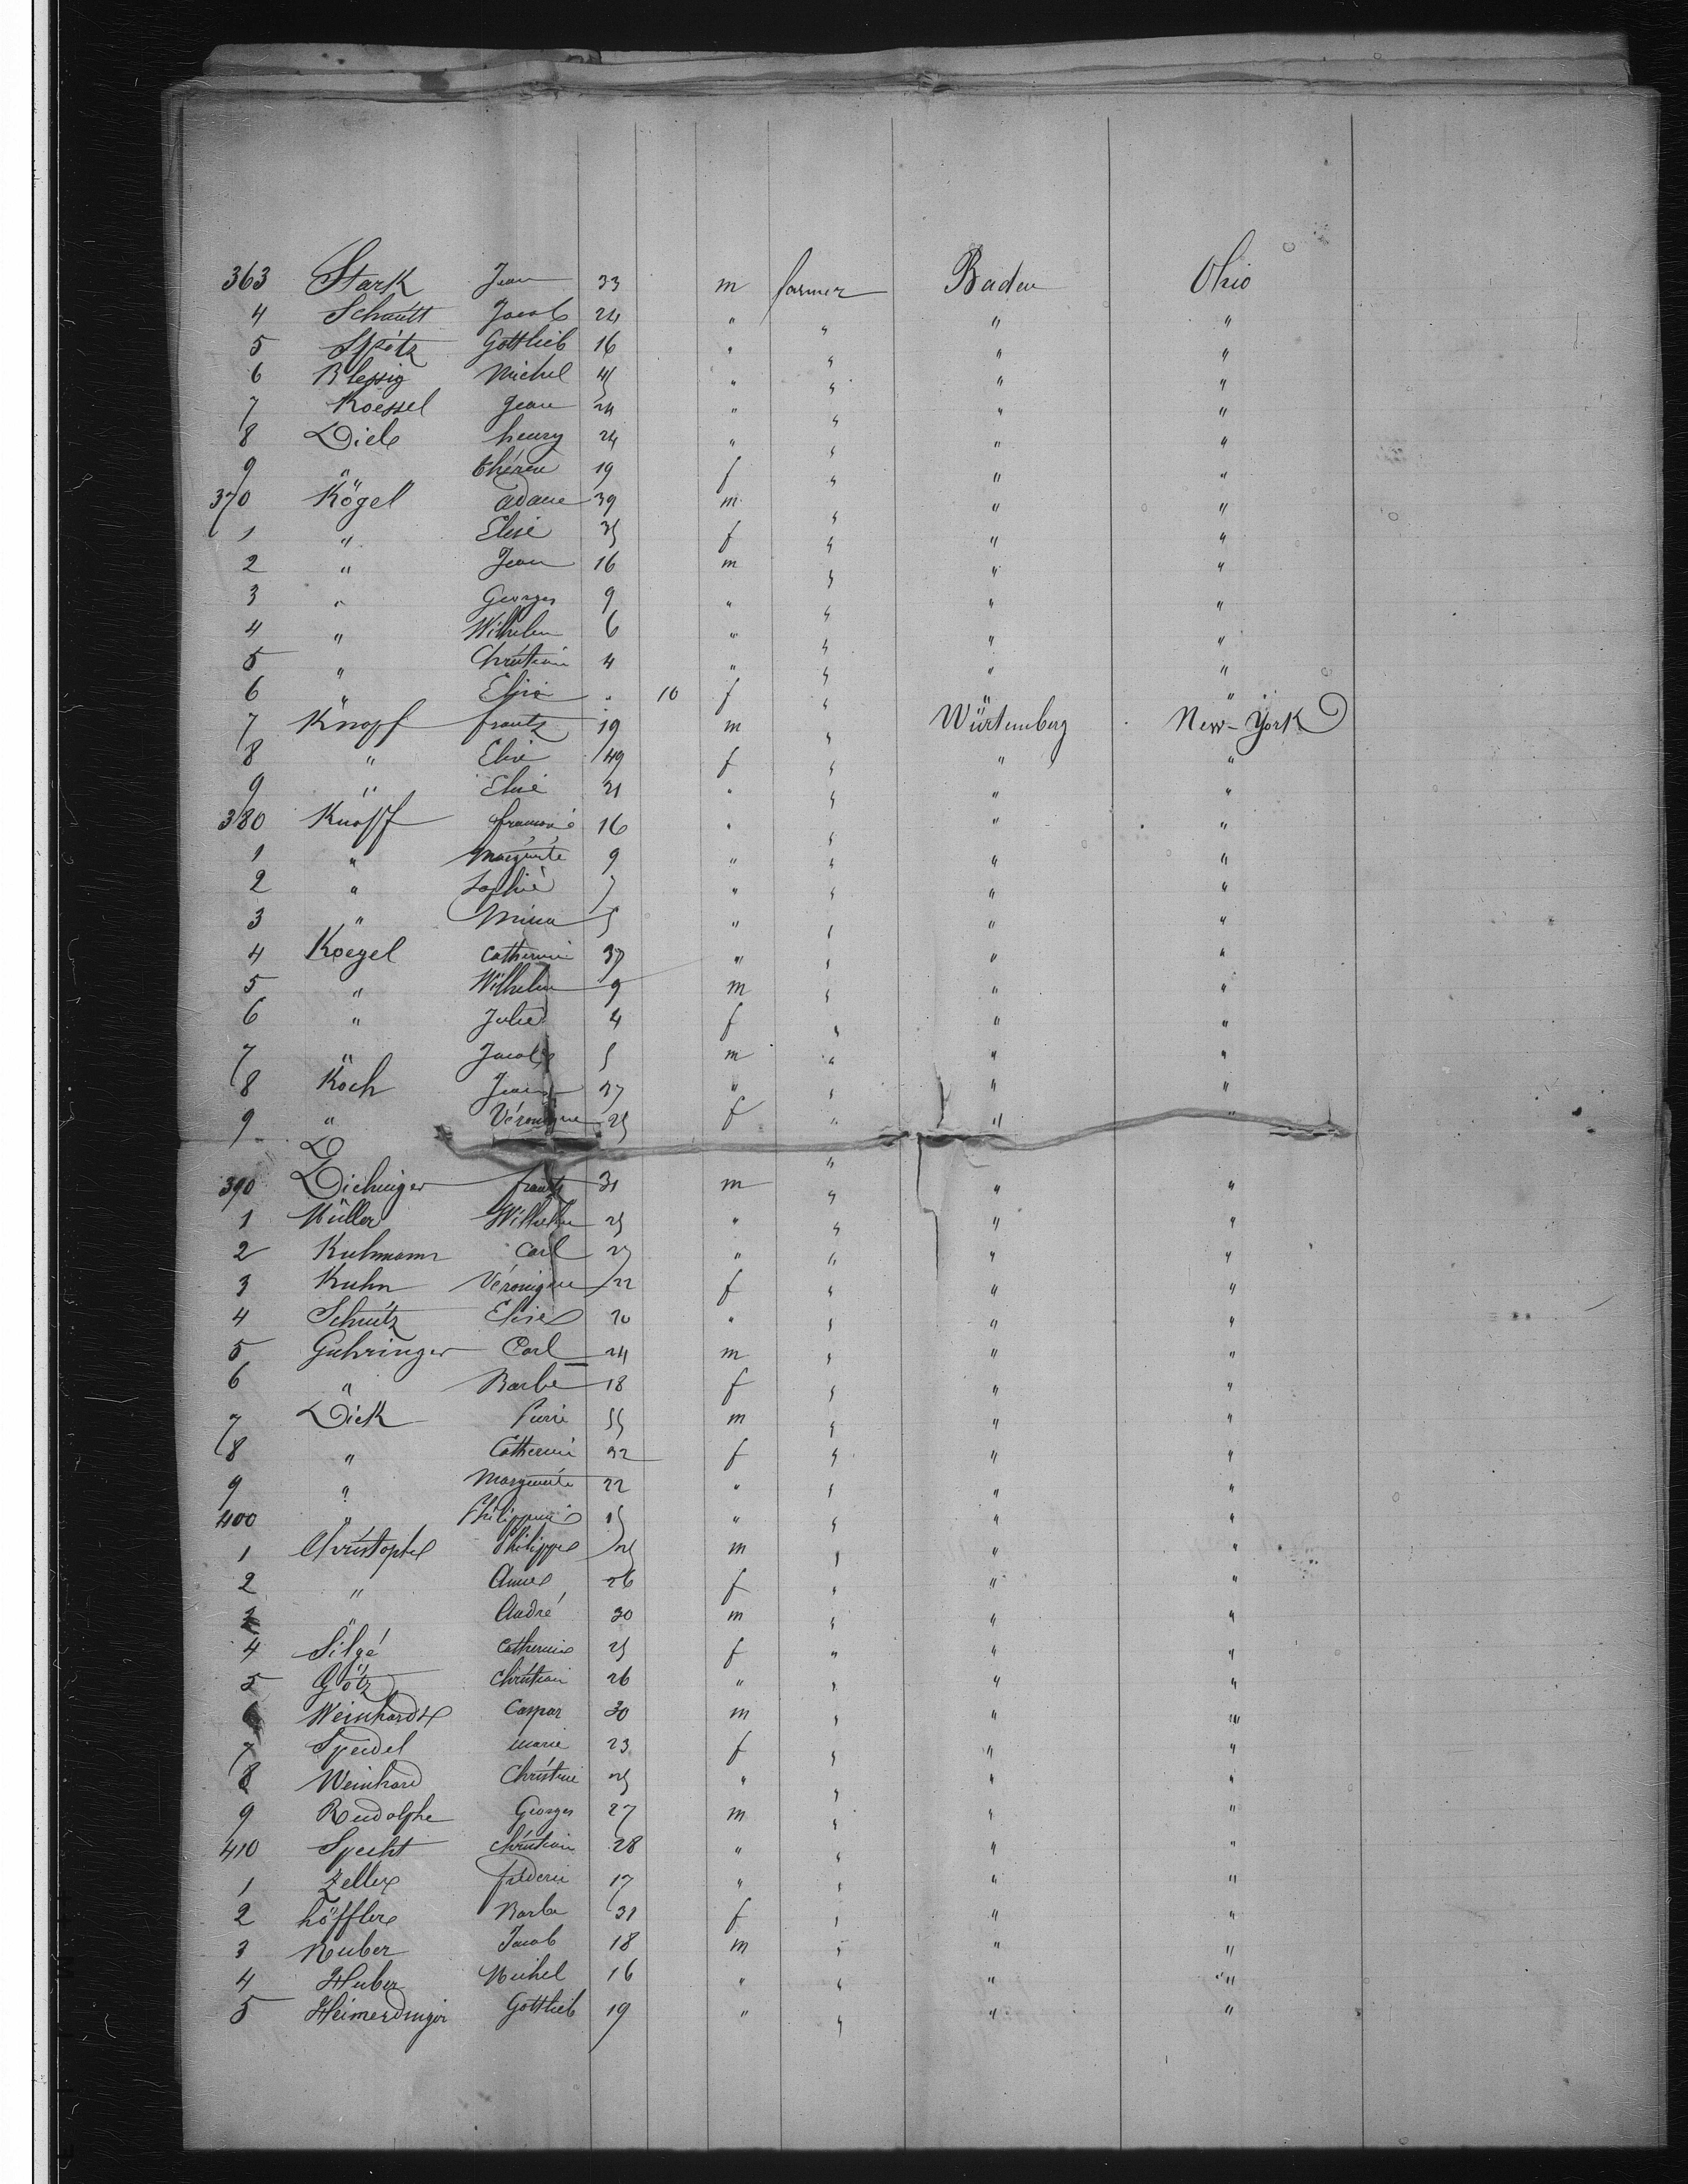 363 Stark Jean 33 m farmer Baden Ohio
4 Schautt Jacob 24 " " " "
5 Spötz Gottlieb 16 " " " "
6 Blessig Michel 45 " " " "
7 Koessel Jean 24 " " " "
8 Diele henry 24 " " " "
9 " thérèse 19 f " " "
370 Kögel adam 39 m " " "
1 " Elise 35 f " " "
2 " Jean 16 m " " "
3 " Georges 9 " " " "
4 " Wilhelm 6 " " " "
5 " Christian 4 " " " "
6 " Elise " 10 f " " "
7 Knopf frantz 19 m " Würtemberg New-York
8 " Elise 49 f " " "
9 " Elise 21 " " " "
380 Knopf 16 " " " "
1 " Marguerite 9 " " " "
2 " Sophie 7 " " " "
3 " Mina 5 " " " "
4 Koegel Catherine 37 " " " "
5 " Wilhelm 9 m " " "
6 " Julie 4 f " " "
7 " Jacob 5 m " " "
8 Koch Jean 27 " " " "
9 " Véronique 25 f " " "
D "
390 Dichinger frantz 31 m " " "
1 Müller Wilhelm 25 " " " "
2 Kuhmann Carl 25 " " " "
3 Kuhn Véronique 22 f " " "
4 Schütz Elise 20 " " " "
5 Guhringer Carl 24 m " " "
6 " Barbe 18 f " " "
7 Dick Pierre 55 m " " "
8 " Catherine 32 f " " "
9 " Marguerite 22 " " " "
400 " Philippine 15 " " " "
1 Christophe Philippe 25 m " " "
2 " Anne 26 f " " "
3 " André 30 m " " "
4 Silgé Catherine 25 f " " "
5 Götz Christian 26 " " " "
6 Weinhardt Caspar 30 m " " "
7 Speidel marie 23 f " " "
8 Weinhard Christine 25 " " " "
9 Rudolphe Georges 27 m " " "
410 Specht Christian 28 " " " "
1 Zeller frederic 17 " " " "
2 höffler Barbe 31 f " " "
3 Jacob 18 m " " "
4 Huber Michel 16 " " " "
5 Heimerdinger Gottlieb 19 " " " "